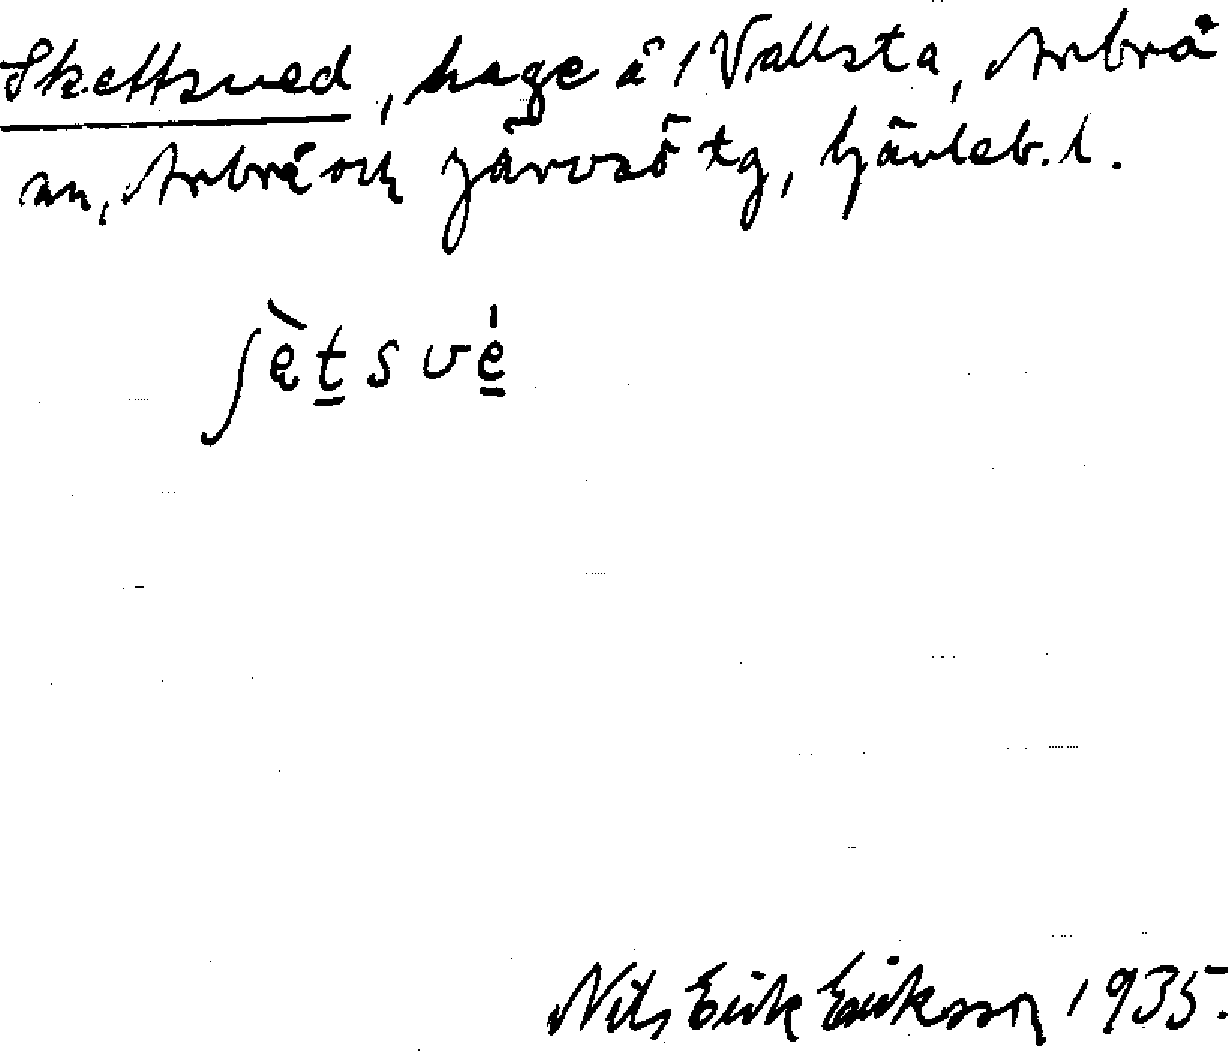 Skettsved, hage å 1 Vallsta, Arbrå
sn, Arbrå och Järvsö tg, Gävleb. l.
ʃę̀tsvé
Nils Erik Eriksson 1935.